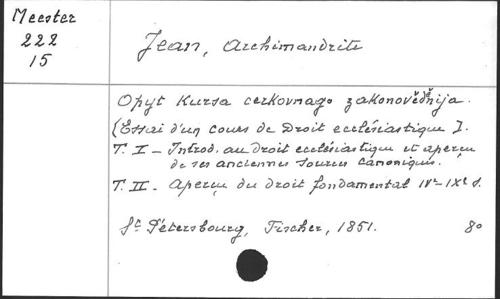 Meester
222
15
Jean, Archimandrite
Opyt Kursa cerkovnago zakonověděnija.
(Essai d'un cours de Droit ecclésiastique].
T. I - Introd. au droit ecclésiastique et aperçu
de ses anciennes sources canoniques.
T. II - Aperçu du droit fondamental IVe-IXe s.
St Pétersbourg, Fischer, 1851. 8o